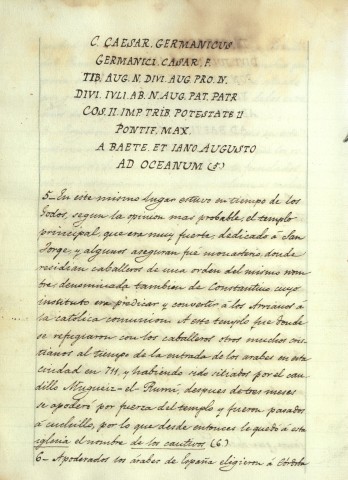 C. CAESAR. GERMANICUS
GERMANICI. CAESAR. F.
TIB. AUG. N. DIVI. AUG. PRO. N.
DIVI. IVLI. AB. N. AUG. PAT. PATR
COS. II. IMP TRIB. POTESTATE II
PONTIF. MAX.
A BAETE. ET IANO AUGUSTO
AD OCEANUM (5)
5_ En este mismo lugar estuvo en tiempo de los
Godos, segun la opinion mas probable, el templo
principal, que era muy fuerte, dedicado á San
Jorge, y algunos aseguran fué monasterio, donde
residian caballeros de una orden del mismo nom
bre, denominada tambien de Constantino cuyo
instituto era predicar y convertir á los Arrianos á
la católica comunion. A este templo fué donde
se refugiaron con los caballeros otros muchos cris
tianos al tiempo de la entrada de los arabes en esta
ciudad en 711, y habiendo sido sitiados por el cau
dillo Mugueiz-el-Rumi, despues de tres meses
se apoderó por fuerza del templo y fueron pasados
á cuchillo, por lo que desde entonces le quedó á esta
iglesia el nombre de los cautivos (6)
6_ Apoderados los árabes de España eligieron á Córdoba